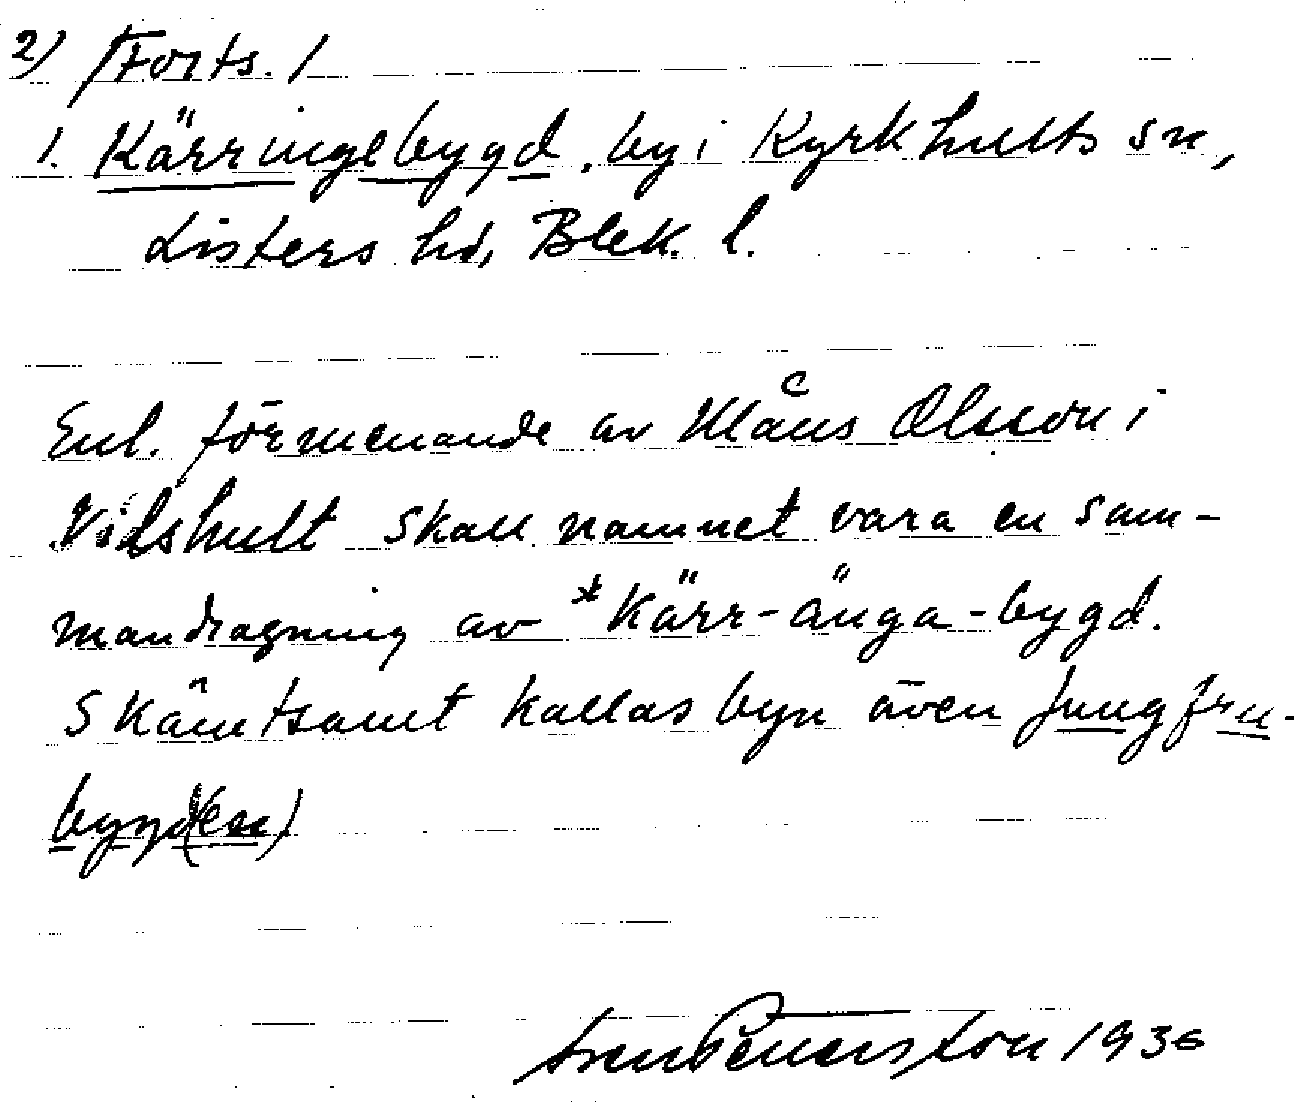 2) /Forts./
1. Kärringebygd, by i Kyrkhults sn,
Listers hd, Blek. l.
Enl. förmenande av Måns Olsson i
Vilshult skall namnet vara en sam-
mandragning av *Kärr-änga-bygd.
Skämtsamt kallas byn även Jungfru-
bygd(en)
Sven Benerston 1936